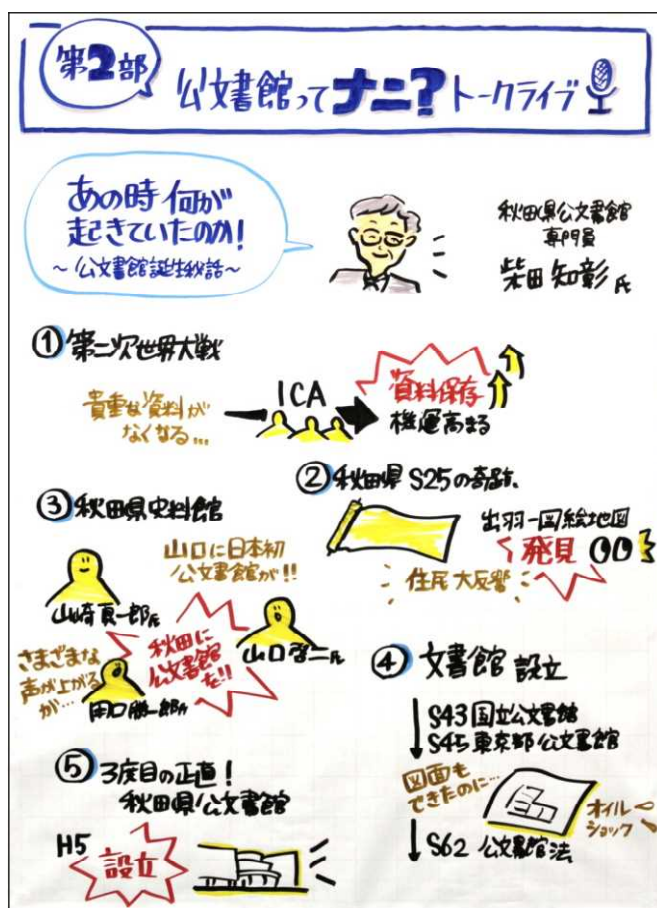 第2部
公文書館ってナニ?トークライブ
あの時何が
起きていたのか!
~公文書館誕生秘話~
秋田県公文書館
専門員
柴田知彰氏
①第二次世界大戦
貴重な資料が
なくなる...
ICA
資料保存
機運高まる
②秋田県S25の奇跡
出羽一国絵地図
発見
住民大反響
③秋田県史料館
山口に日本初
公文書館が!!
山崎真一郎氏
秋田に
公文書館
を!!
山口啓二氏
さまざまな
声が上がる
が...
④文書館設立
S43国立公文書館
S45東京都公文書館
図面も
できたのに...
オイル
ショック
S62 公文書館法
⑤3度目の正直!
秋田県公文書館
H5
設立